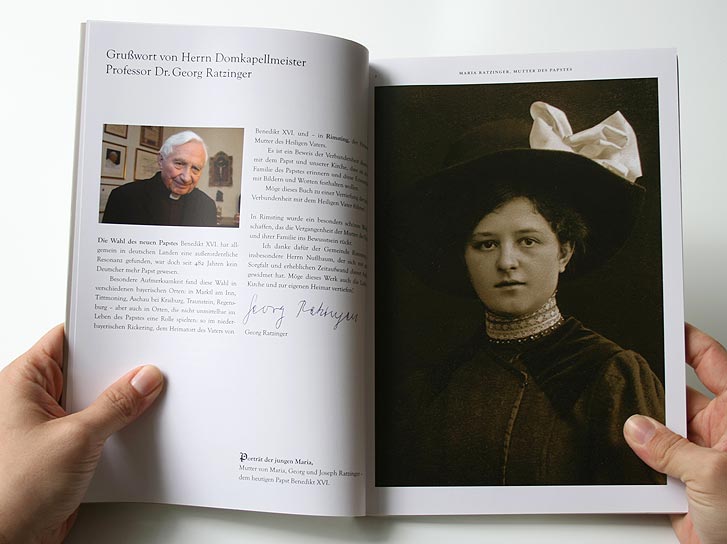 Grußwort von Herrn Domkapellmeister
Professor Dr. Georg Ratzinger
Die Wahl des neuen Papstes Benedikt XVI. hat all-
gemein in deutschen Landen eine außerordentliche
Resonanz gefunden, war doch seit 482 Jahren kein
Deutscher mehr Papst gewesen.
Besondere Aufmerksamkeit fand diese Wahl in
verschiedenen bayerischen Orten: in Marktl am Inn,
Tittmoning, Aschau bei Kraiburg, Traunstein, Regens-
burg - aber auch in Orten, die nicht unmittelbar im
Leben des Papstes eine Rolle spielten: so im nieder-
bayerischen Rickering, dem Heimatort des Vaters von
Benedikt XVI. und - in Rimsting, der
Mutter des Heiligen Vaters.
Es ist ein Beweis der Verbundenheit
mit dem Papst und unserer Kirche, dass
Familie des Papstes erinnern und diese
mit Bildern und Worten festhalten wollen.
Möge dieses Buch zu einer Vertiefung der
Verbundenheit mit dem Heiligen Vater
In Rimsting wurde ein besonders schönes
schaffen, das die Vergangenheit der Mutter des
und ihrer Familie ins Bewusstsein rückt.
Ich danke dafür der Gemeinde
insbesondere Herrn Nußbaum, der sich mit
Sorgfalt und erheblichen Zeitaufwand dieser
gewidmet hat. Möge dieses Werk auch die Liebe
Kirche und zur eigenen Heimat vertiefen!
Georg Ratzinger
Georg Ratzinger
Porträt der jungen Maria,
Mutter von Maria, Georg und Joseph Ratzinger -
dem heutigen Papst Benedikt XVI.
MARIA RATZINGER, MUTTER DES PAPSTES